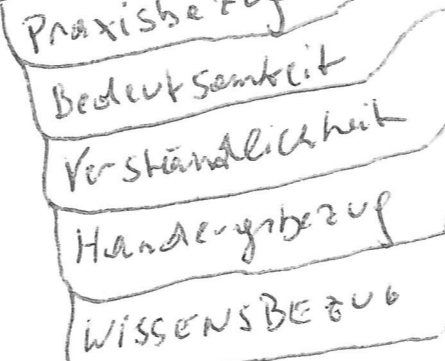 Praxisbezug
Bedeutsamkeit
Verständlichkeit
Handlungsbezug
WISSENSBEZUG